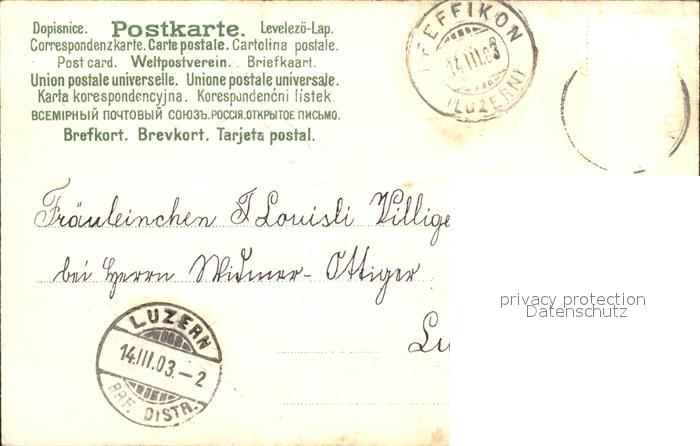 Dopisnice. Postkarte. Levelező-Lap.
Correspondenzkarte. Carte postale. Cartolina postale.
Post card. Weltpostverein. Briefkaart.
Union postale universelle. Unione postale universale.
Karta korespondencyjna. Korespondenčni listek.
ВСЕМІРНЫЙ ПОЧТОВЫЙ СОЮЗЪ. РОССІЯ. ОТКРЫТОЕ ПИСЬМО.
Brefkort. Brevkort. Tarjeta postal.
PFEFFIKON
14.III.03
(LUZERN)
Fräuleinchen J Louisli Villige
bei Herrn Widmer-Ottiger
Lu
privacy protection
Datenschutz
LUZERN
14.III.03.–2
BRF. DISTR.